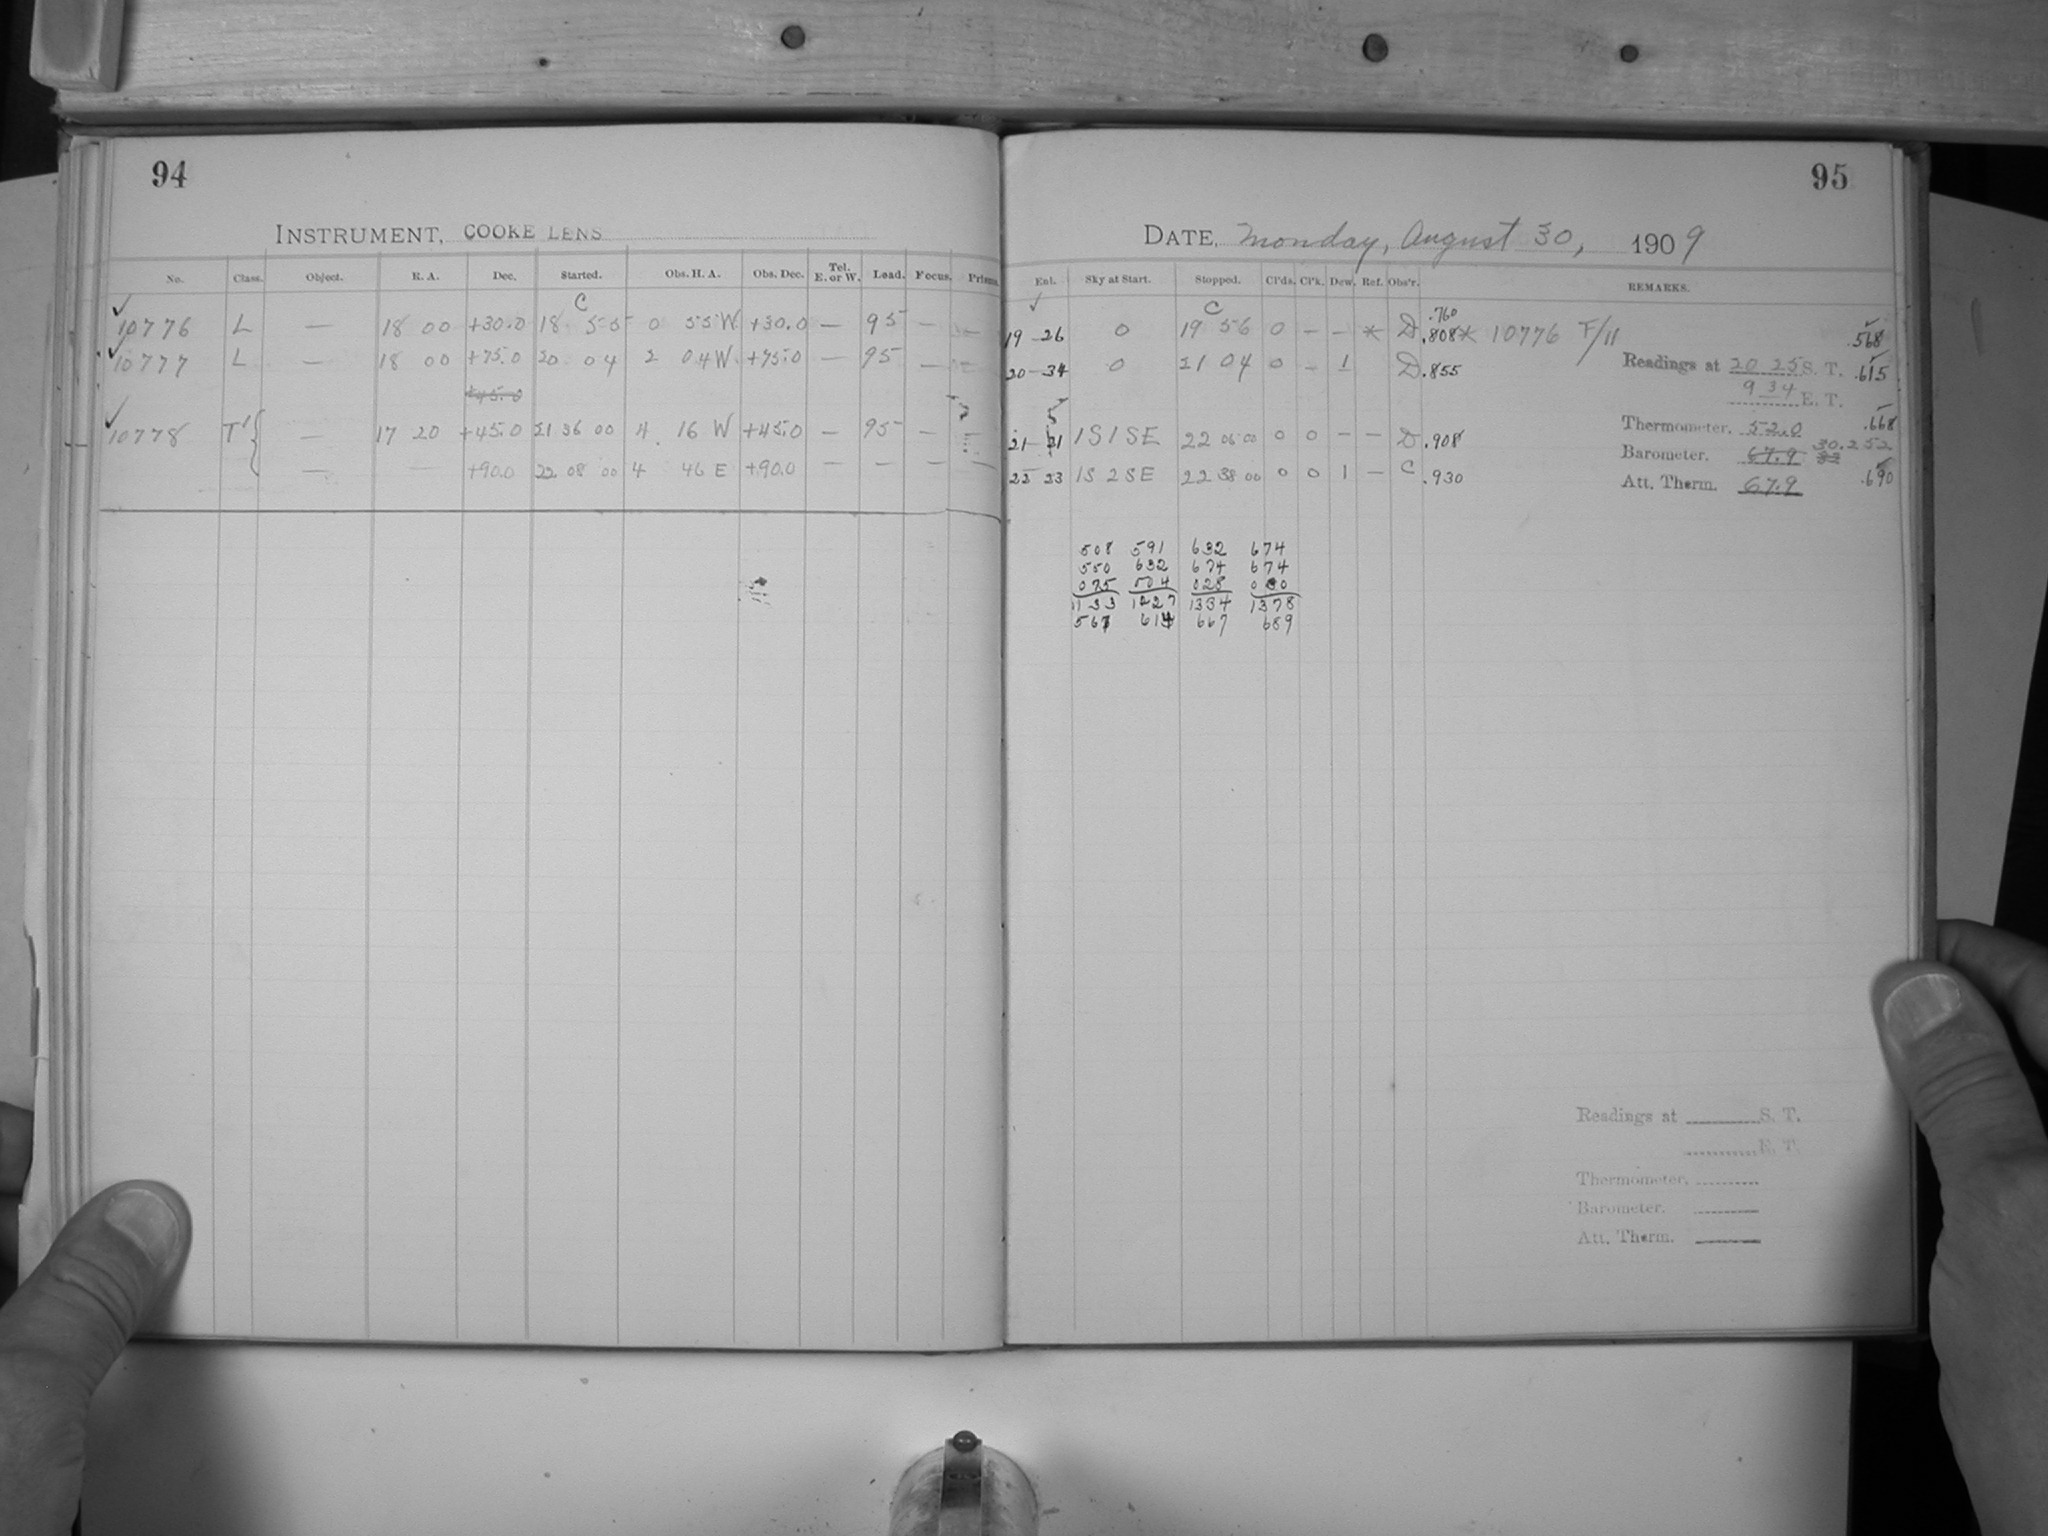 94
INSTRUMENT, COOKE LENS
No. Class. Object. R. A. Dec. Started. Obs. H. A. Obs. Dec. Tel. E. or W. Load. Focus. Prisms.
C
✓ 10776 L — 18 00 +30.0 18 55 0 55 W +30.0 — 95 — —
✓ 10777 L — 18 00 +75.0 20 04 2 04 W +75.0 — 95 — —
+45.0
✓ 10778 T' { — 17 20 +45.0 21 36 00 4 16 W +45.0 — 95 —
— — +90.0 22 08 00 4 46 E +90.0 — — — —
95
DATE, Monday, August 30, 1909
Ent. Sky at Start. Stopped. Cl'ds. Cl'k. Dew. Ref. Obs'r. REMARKS.
✓ C .760
19 26 0 19 56 0 — — * D .808 * 10776 F/11 .568
20—34 0 21 04 0 — 1 D .855 Readings at 20 25 S. T. .615
9 34 E. T.
Thermometer. 52.0 .668
21—31 1S1SE 22 06 00 0 0 — — D .908 Barometer. 67.9 30.252
22 23 1S 2SE 22 38 00 0 0 1 — C .930 Att. Therm. 67.9 .690
508 591 632 674
550 632 674 674
075 004 028 030
1133 1227 1334 1378
567 614 667 689
Readings at S. T.
E. T.
Thermometer.
Barometer.
Att. Therm.